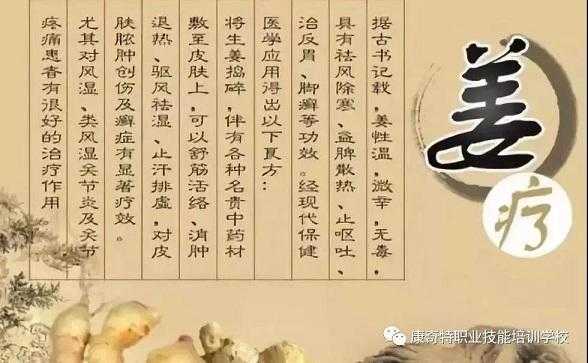 姜
疗
据古书记载,姜性温,微辛,无毒,
具有祛风除寒、益脾散热、止呕吐、
治反胃、脚癣等功效。经现代保健
医学应用得出以下方:
将生姜捣碎,伴有各种名贵中药材
敷至皮肤上,可以舒筋活络、消肿
退热、驱风祛湿、止汗排虚,对皮
肤脓肿创伤及癣症有显著疗效。
尤其对风湿、类风湿关节炎及关节
疼痛患者有很好的治疗作用
康奇特职业技能培训学校